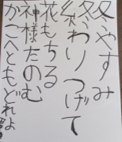 冬やすみ
終わりつげて
花もちる
神様たのむ
がこへともどれよ